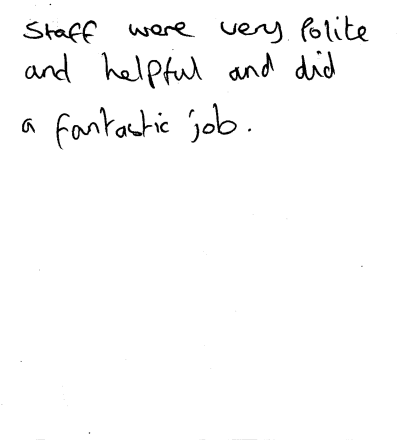 Staff were very polite
and helpful and did
a fantastic job.